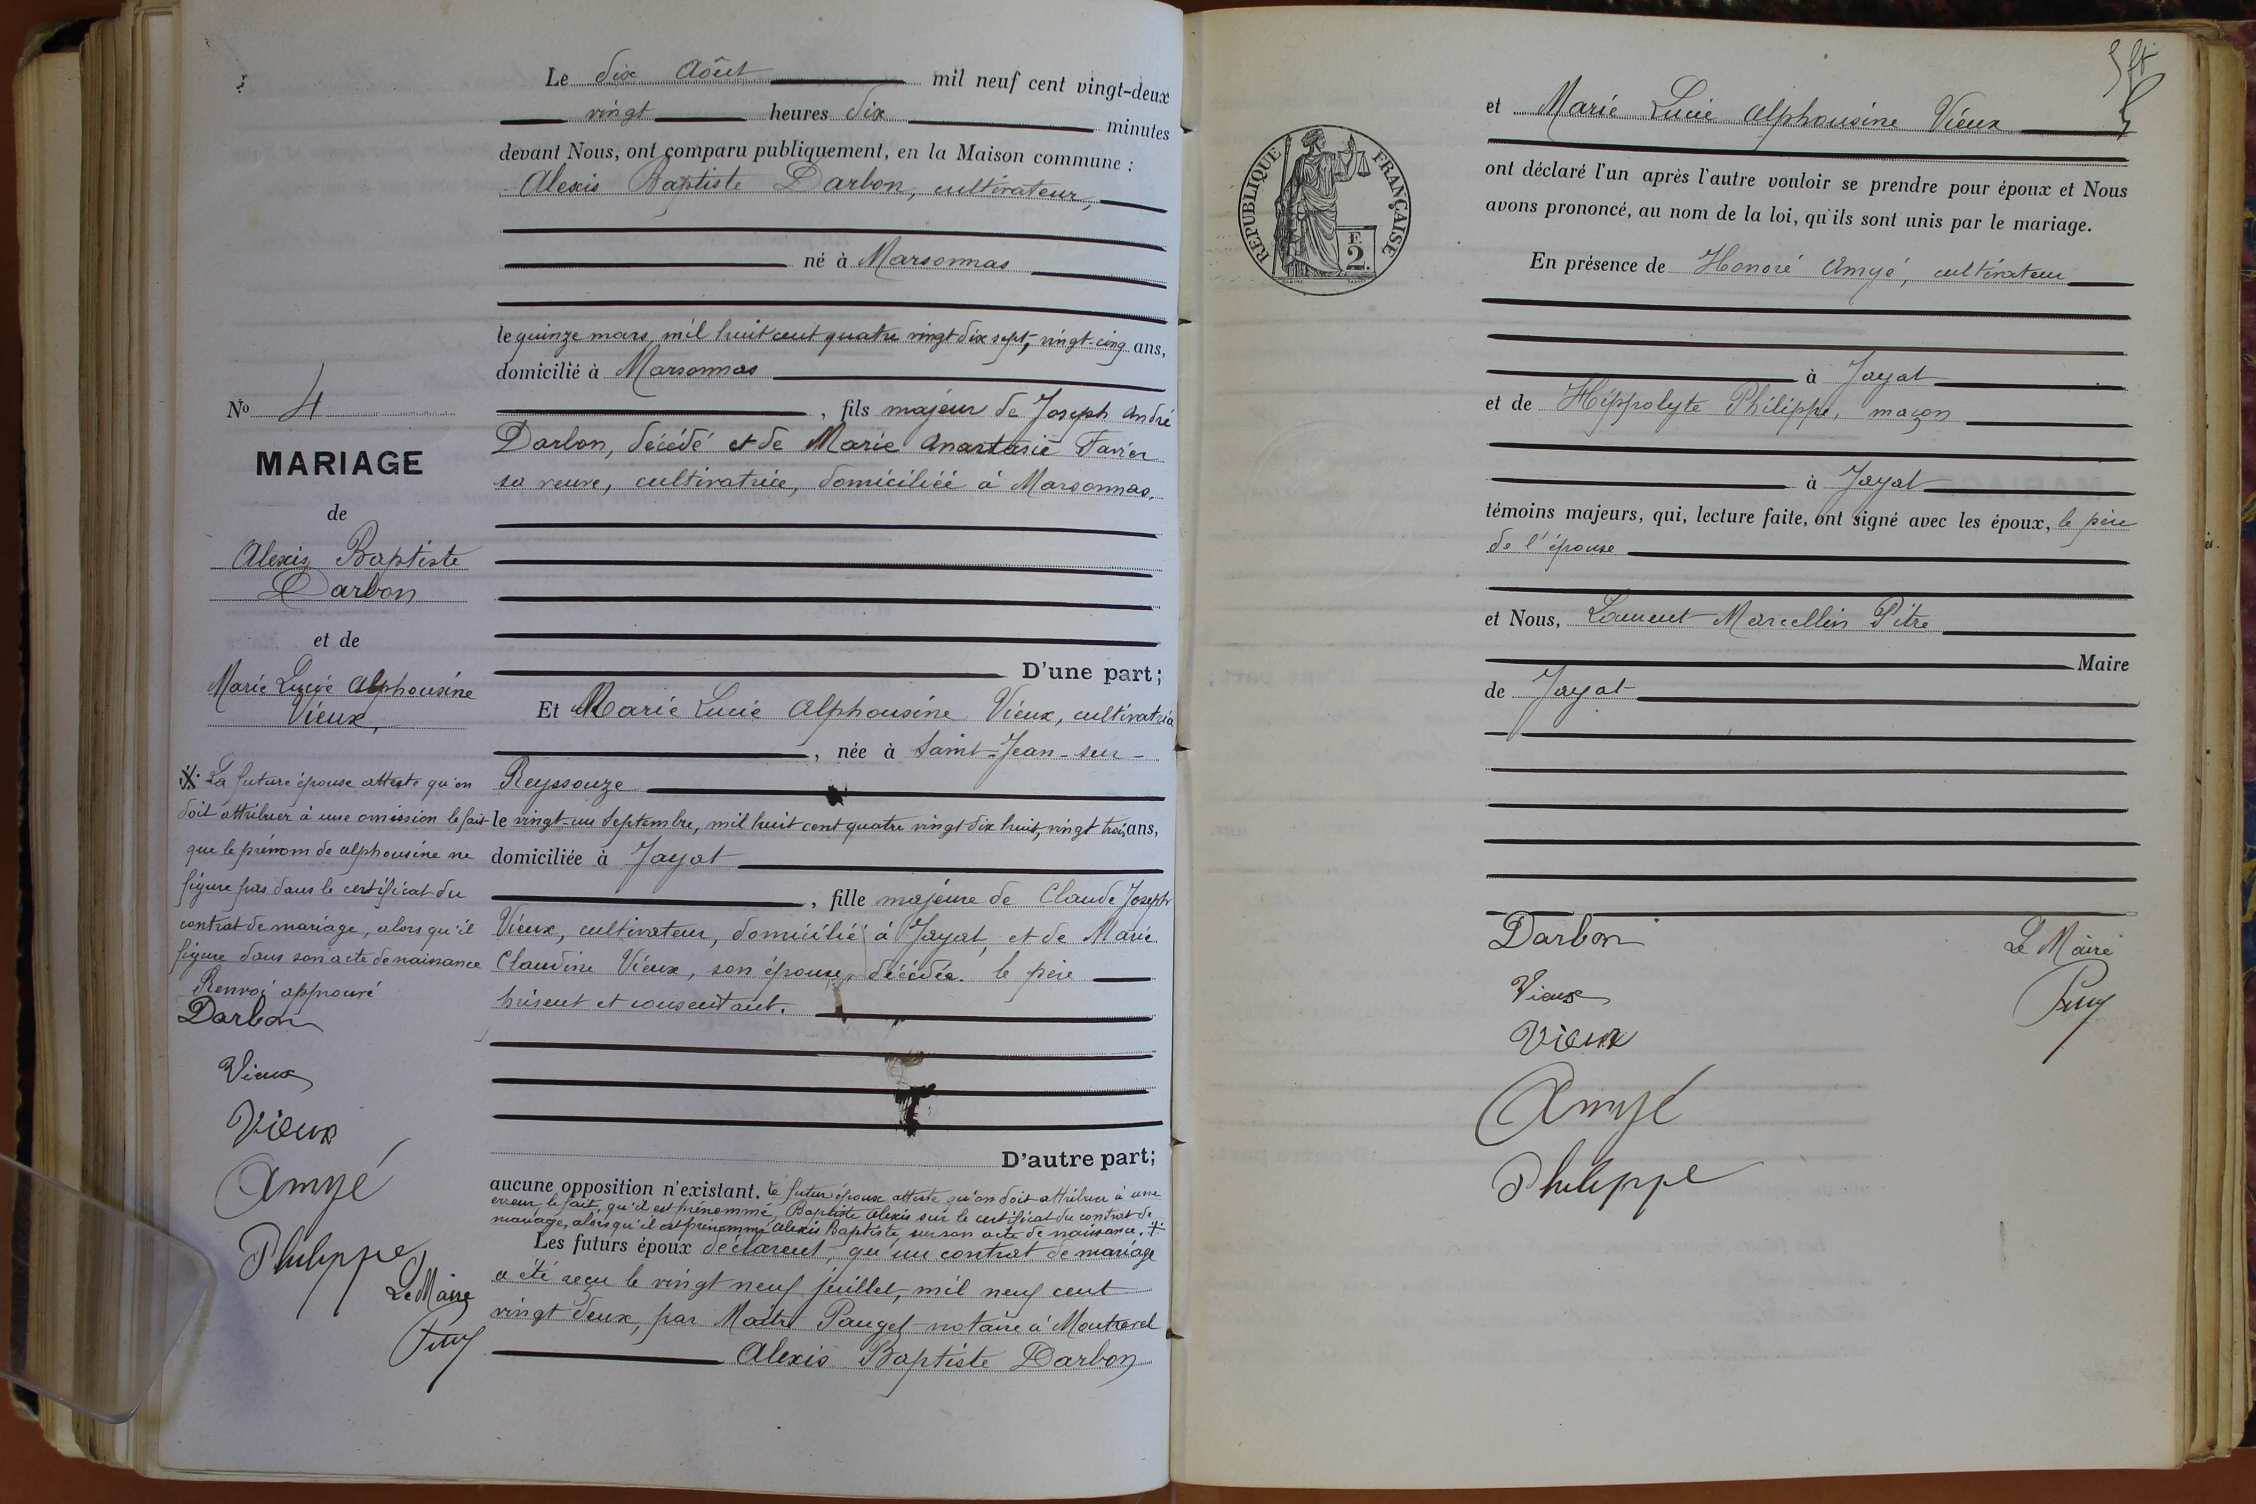 Le dix Août mil neuf cent vingt-deux
vingt heures dix minutes
devant Nous, ont comparu publiquement, en la Maison commune :
Alexis Baptiste Darbon, cultivateur,
né à Marsonnas
le quinze mars mil huit cent quatre vingt dix sept, vingt-cinq ans,
domicilié à Marsonnas
, fils majeur de Joseph André
Darbon, décédé et de Marie Anastasie Favier
sa veuve, cultivatrice, domiciliée à Marsonnas.
D'une part;
Et Marie Lucie Alphonsine Vieux, cultivatrice
, née à Saint-Jean-sur-
Reyssouze
le vingt-un Septembre, mil huit cent quatre vingt dix huit, vingt trois ans,
domiciliée à Jayat
, fille majeure de Claude Joseph
Vieux, cultivateur, domicilié à Jayat, et de Marie
Claudine Vieux, son épouse, décédée. le père
présent et consentant.
D'autre part;
aucune opposition n'existant. Le futur époux atteste qu'on doit attribuer à une
erreur le fait qu'il est prénommé Baptiste Alexis sur le certificat du contrat de
mariage, alors qu'il est prénommé Alexis Baptiste sur son acte de naissance.
Les futurs époux déclarent, qu'un contrat de mariage
a été reçu le vingt neuf juillet, mil neuf cent
vingt deux, par Maître Pauget notaire à Montrevel
Alexis Baptiste Darbon
No 4
MARIAGE
de
Alexis Baptiste
Darbon
et de
Marie Lucie Alphonsine
Vieux,
La future épouse atteste qu'on
doit attribuer à une omission le fait
que le prénom de Alphonsine ne
figure pas dans le certificat du
contrat de mariage, alors qu'il
figure dans son acte de naissance
Renvoi approuvé
Darbon
Vieux
Vieux
Amyé
Philippe
Le Maire
et Marie Lucie Alphonsine Vieux
ont déclaré l'un après l'autre vouloir se prendre pour époux et Nous
avons prononcé, au nom de la loi, qu'ils sont unis par le mariage.
RÉPUBLIQUE FRANÇAISE
F.
2.
En présence de Honoré Amyé, cultivateur
à Jayat
et de Hippolyte Philippe, maçon
à Jayat
témoins majeurs, qui, lecture faite, ont signé avec les époux, le père
de l'épouse
et Nous, Laurent Marcellin Pitre
Maire
de Jayat
Darbon
Le Maire
Vieux
Vieux
Amyé
Philippe